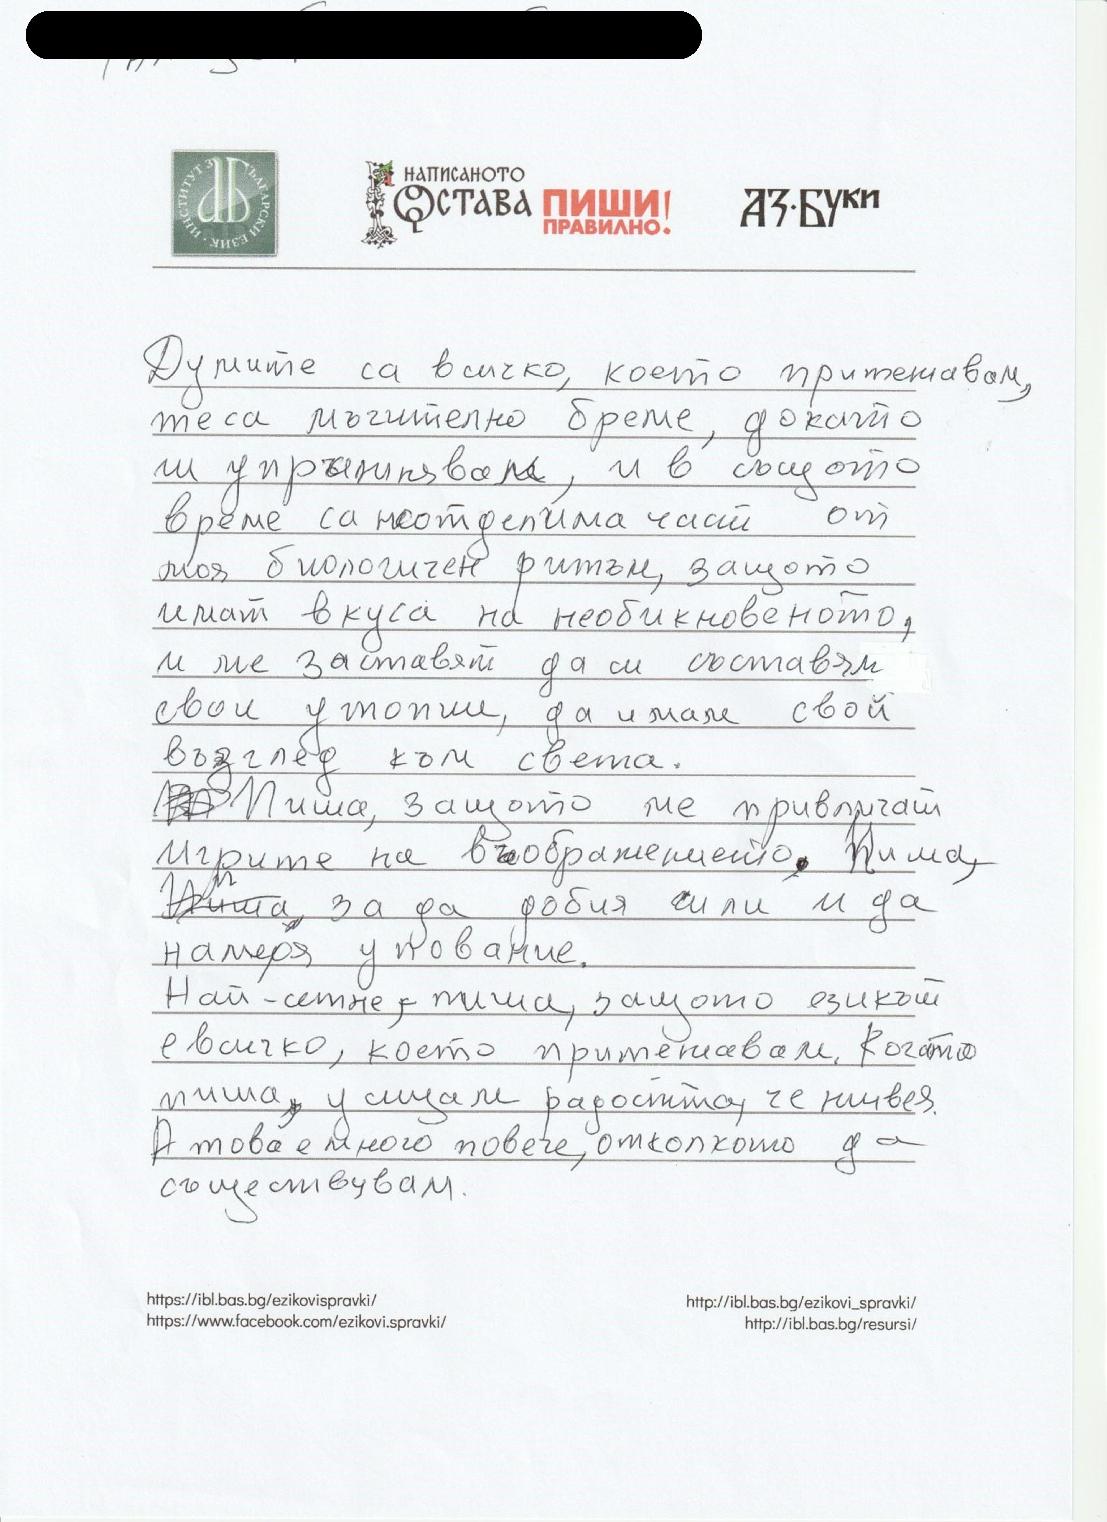 ИНСТИТУТ ЗА БЪЛГАРСКИ ЕЗИК
НАПИСАНОТО
ОСТАВА
ПИШИ
ПРАВИЛНО!
АЗ·БУКИ
Думите са всичко, което притежавам,
те са мъчително бреме, докато
ги упражнявам, и в същото
време са неотделима част от
моя биологичен ритъм, защото
имат вкуса на необикновеното,
и ме заставят да си съставям
свои утопии, да имам свой
възглед към света.
Пиша, защото ме привличат
игрите на въображението. Пиша,
за да добия сили и да
намеря упование.
Най-сетне, пиша, защото езикът
е всичко, което притежавам. Когато
пиша, усещам радостта, че живея.
А това е много повече, отколкото да
съществувам.
https://ibl.bas.bg/ezikovispravki/
https://www.facebook.com/ezikovi.spravki/
http://ibl.bas.bg/ezikovi_spravki/
http://ibl.bas.bg/resursi/